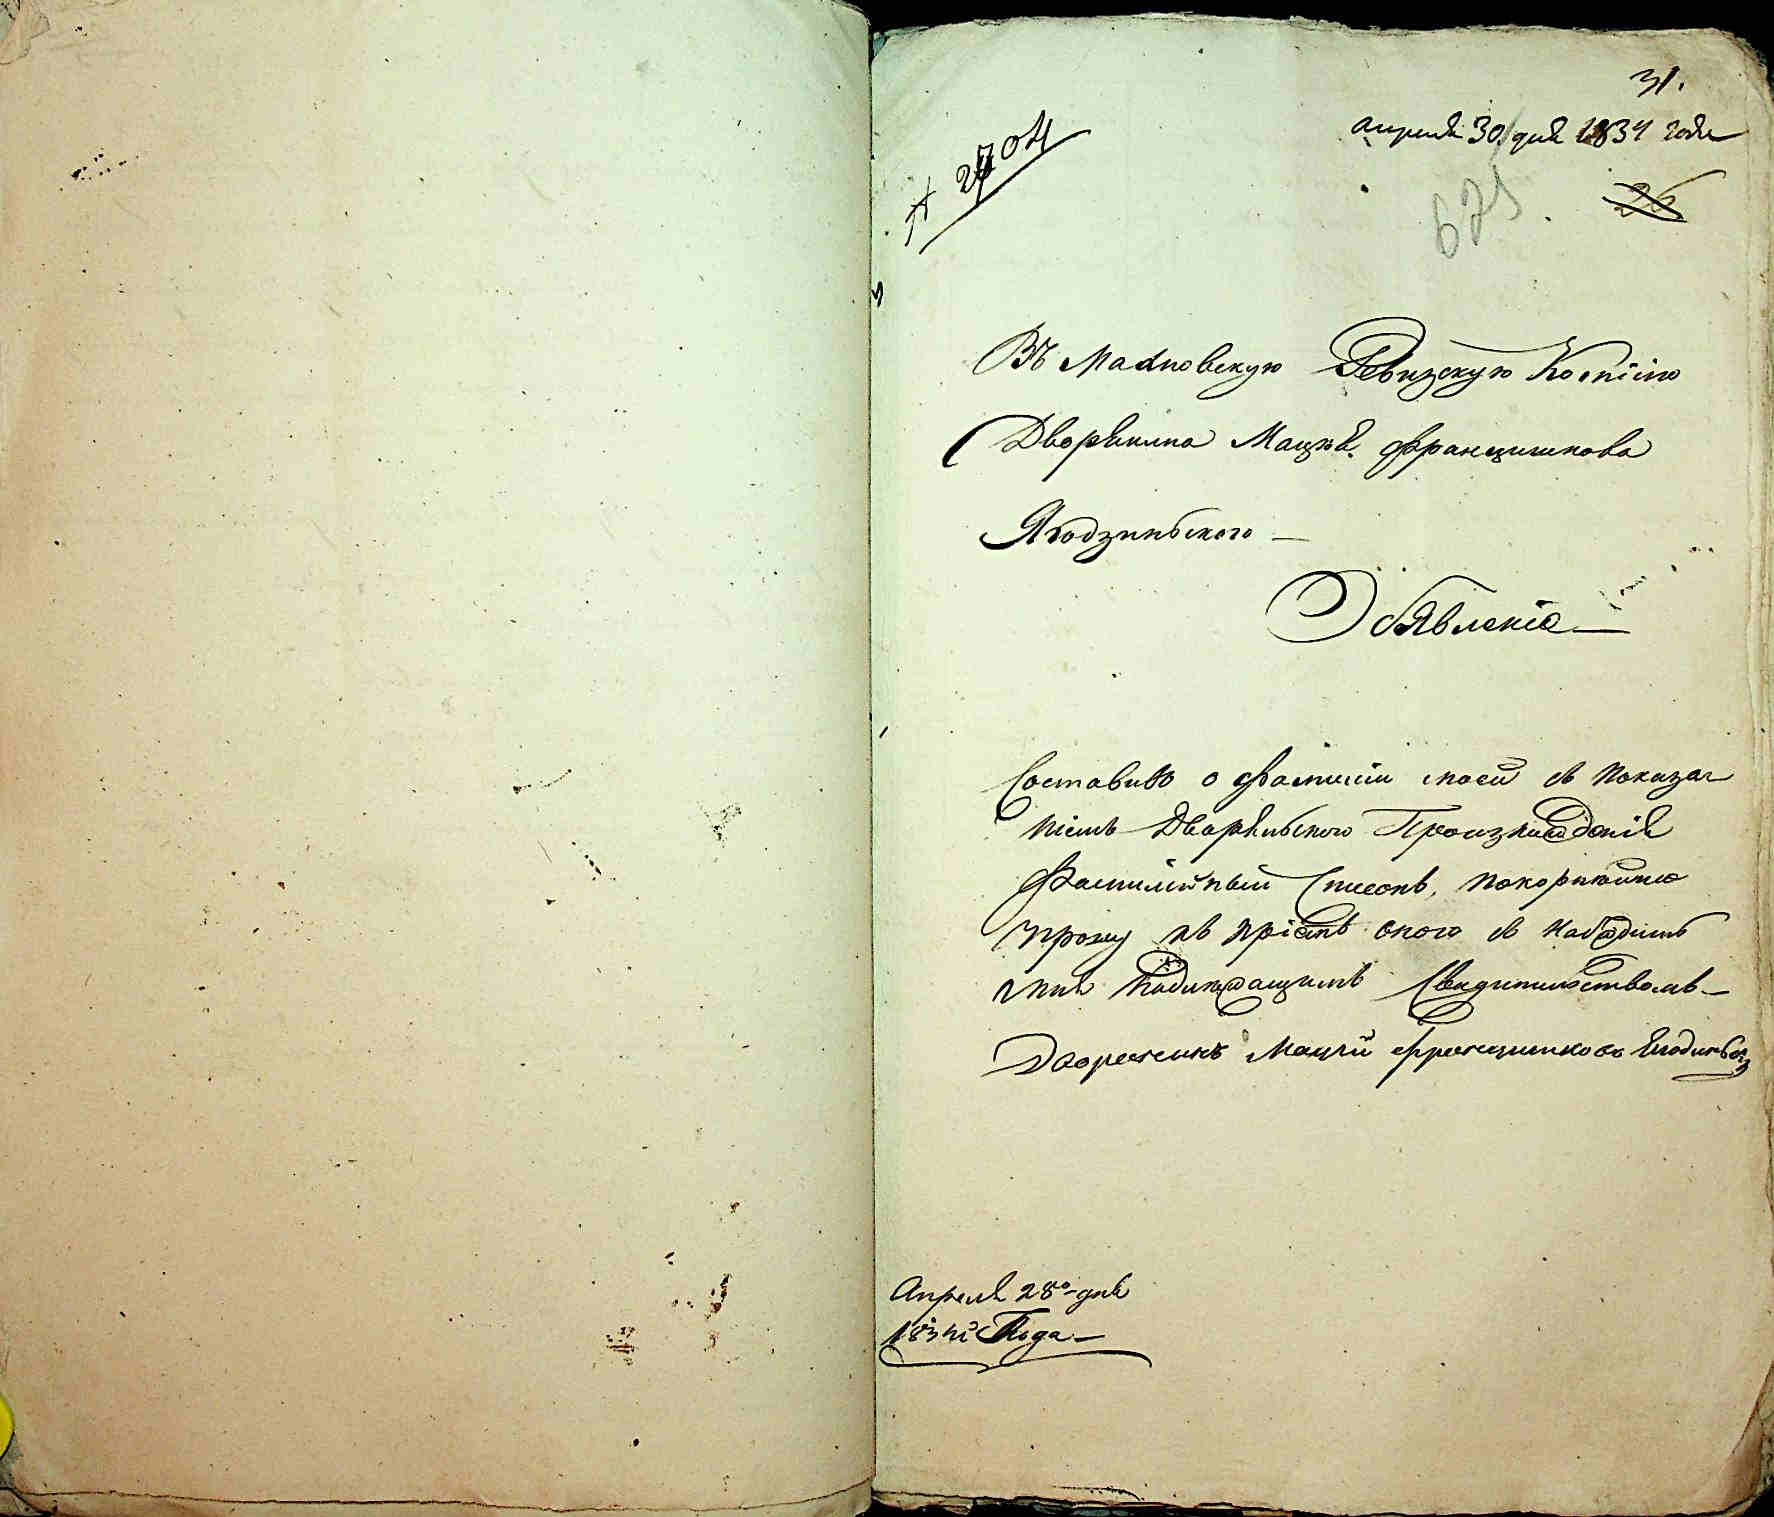 31.
апреля 30 дня 1834 года
№ 2704
26
625
Въ Махновскую Ревизскую Комісію
Дворянина Мацѣя Францишкова
Ягодзиньского
Обявленіе
Составивъ о фамиліи моей съ показа
ніемъ Дворяньского Произхожденія
Фамилійный Списокъ, покорнѣйше
прошу въ пріемъ оного съ набдить
мнѣ надлежащимъ Свидетельствомъ
Дворенинъ Мацей Францишковъ
Апреля 28го дня
1834го Года